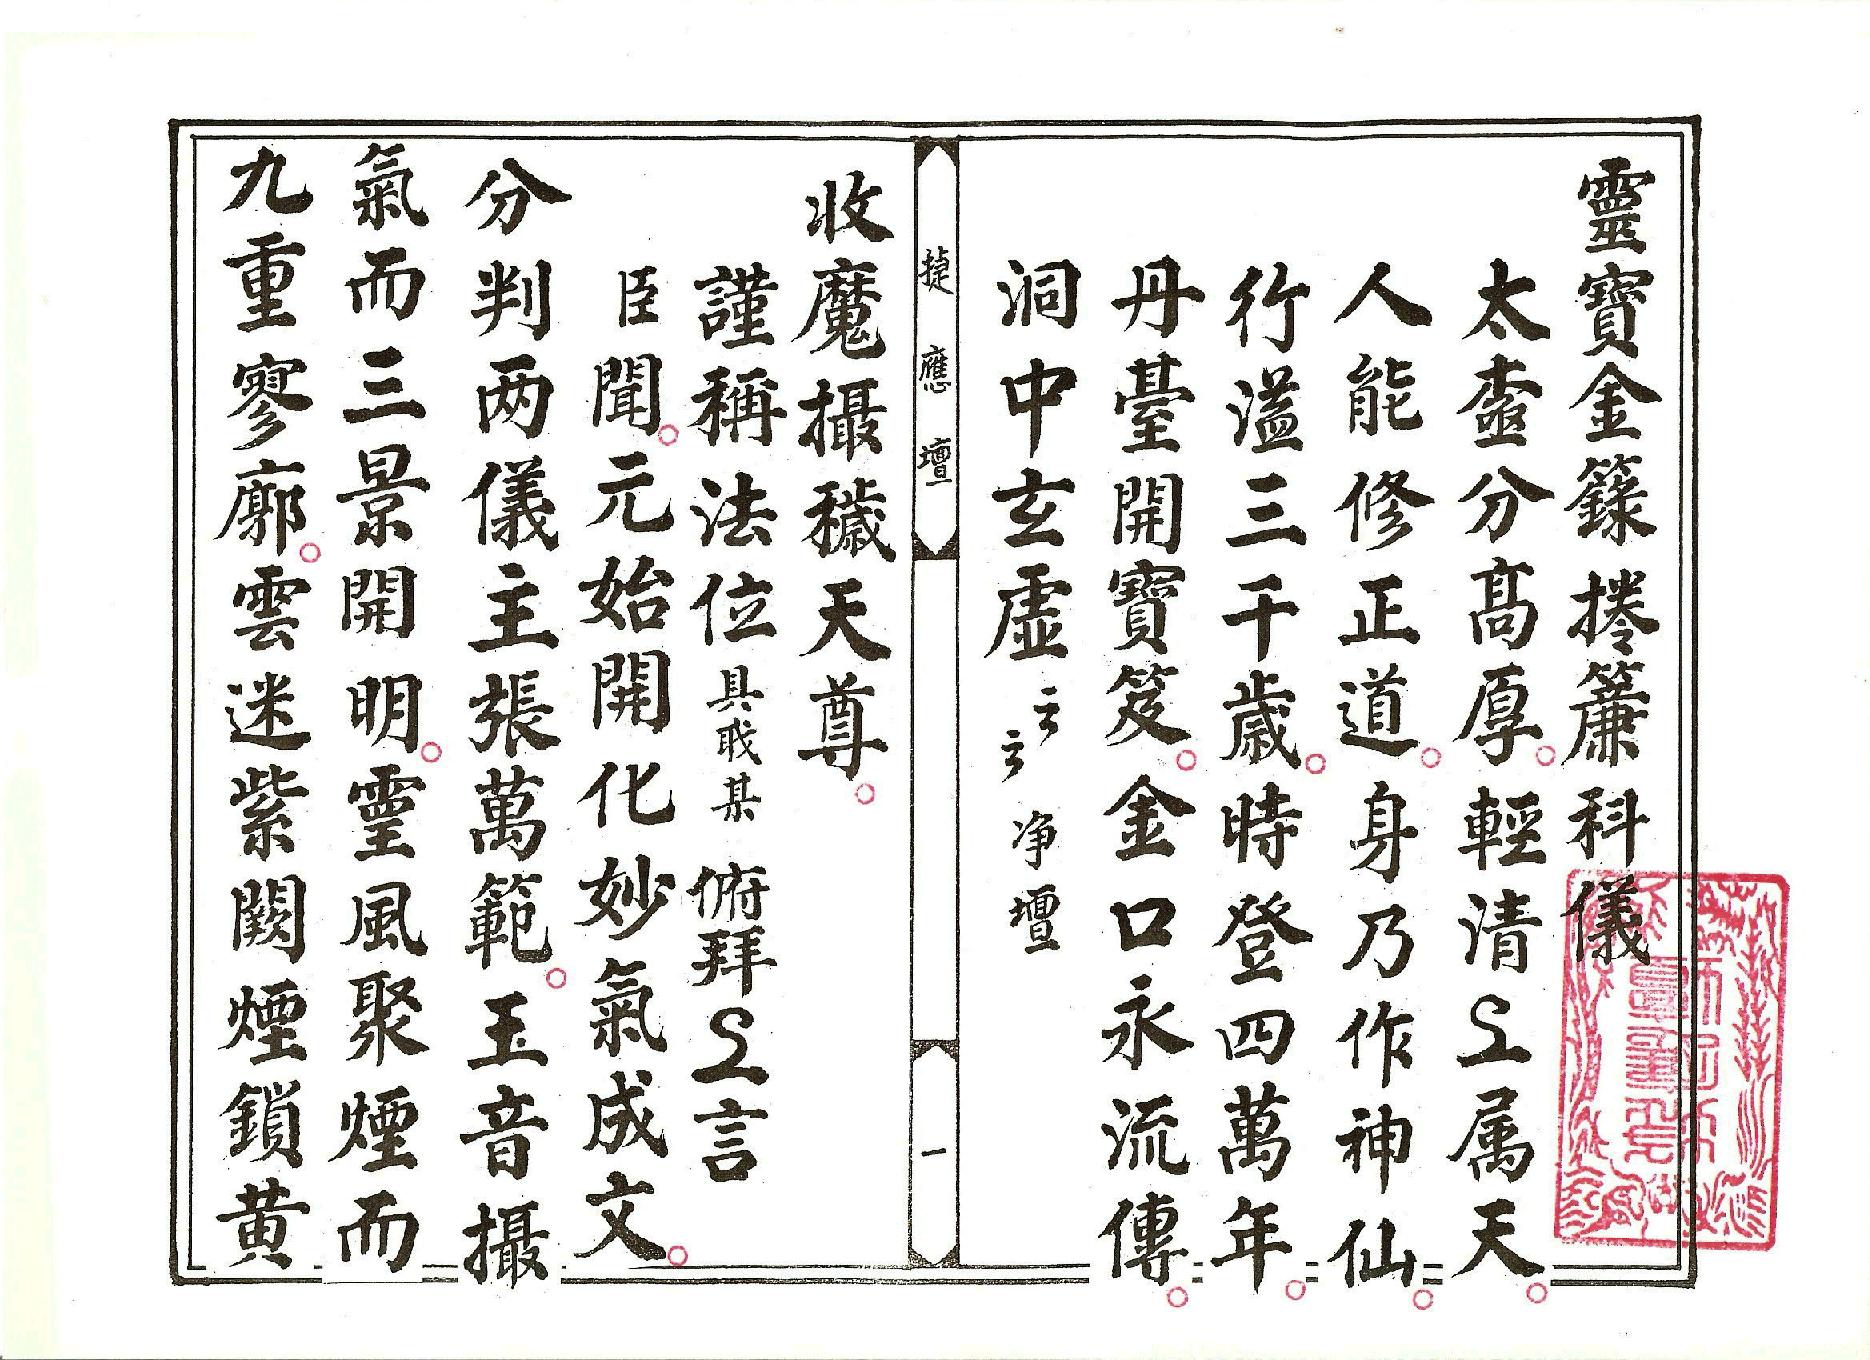 靈寶金籙捲簾科儀
太壺分高厚。輕清上属天。
人能修正道。身乃作神仙。
行溢三千歲。時登四萬年。
丹臺開寶笈。金口永流傳。
洞中玄虛云云 净壇
捷應壇 一
收魔攝穢天尊。
謹稱法位具職某 俯拜上言
臣聞。元始開化妙氣成文。
分判两儀主張萬範。玉音攝
氣而三景開明。靈風聚煙而
九重寥廓。雲迷紫闕煙鎖黄